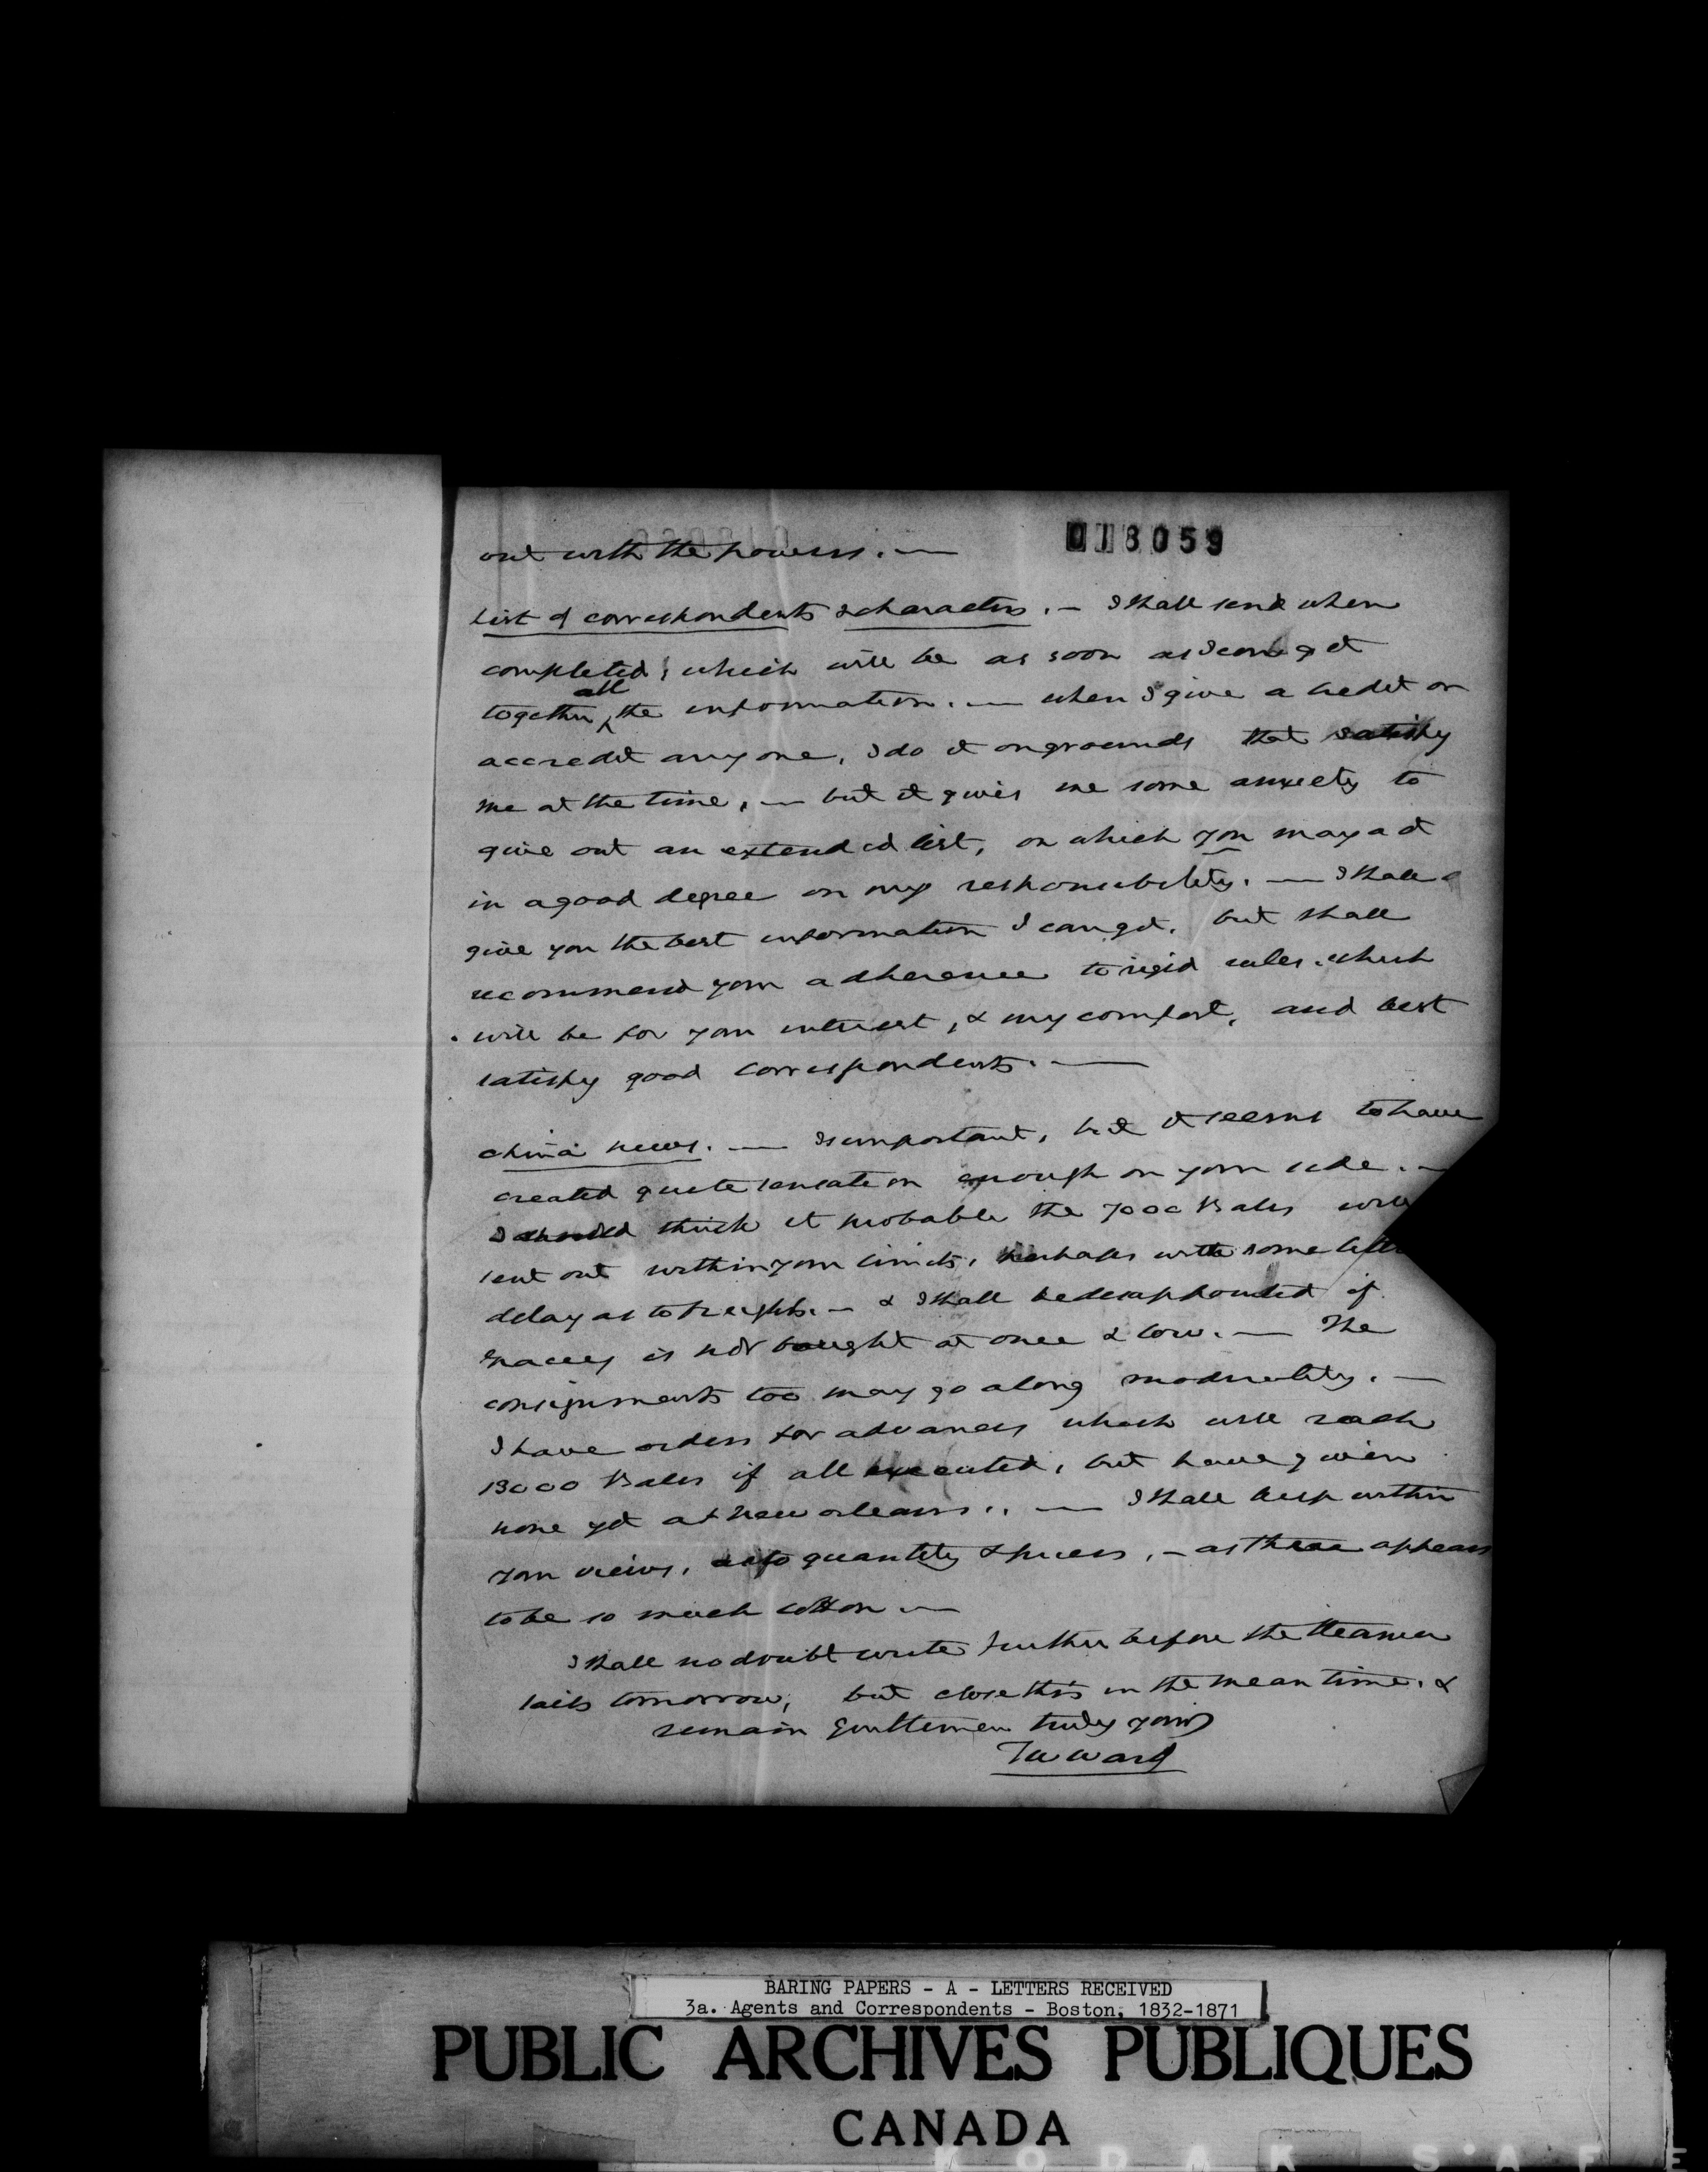 018059
out with the powers. —
List of correspondents & characters. — I shall send when
completed, which will be as soon as I can get
together all the information. — when I give a credit or
accredit any one, I do it on grounds that satisfy
me at the time, — but it gives me some anxiety to
give out an extended list, on which you may act
in a good degree on my responsibility. — I shall
give you the best information I can get, but shall
recommend your adherence to rigid rules which
will be for your interest, & my comfort, and best
satisfy good correspondents. —
China news. — Is important, but it seems to have
created quite sensation enough on your side. —
I should think it probable the 7000 Bales will
out within your limits, perhaps with some little
delay as to freights. — & I shall be disappointed if
is not bought at once & low. — The
consignments too may go along moderately. —
I have orders for advances which will reach
13000 Bales if all executed, but have given
none yet at New Orleans. — I shall keep within
your views, as to quantity & prices, — as there appears
to be so much cotton —
I shall no doubt write further before the Steamer
sails tomorrow, but close this in the mean time, &
remain Gentlemen truly yours
TW Ward
BARING PAPERS - A - LETTERS RECEIVED
3a. Agents and Correspondents - Boston, 1832-1871
PUBLIC ARCHIVES PUBLIQUES
CANADA
KODAK SAFE